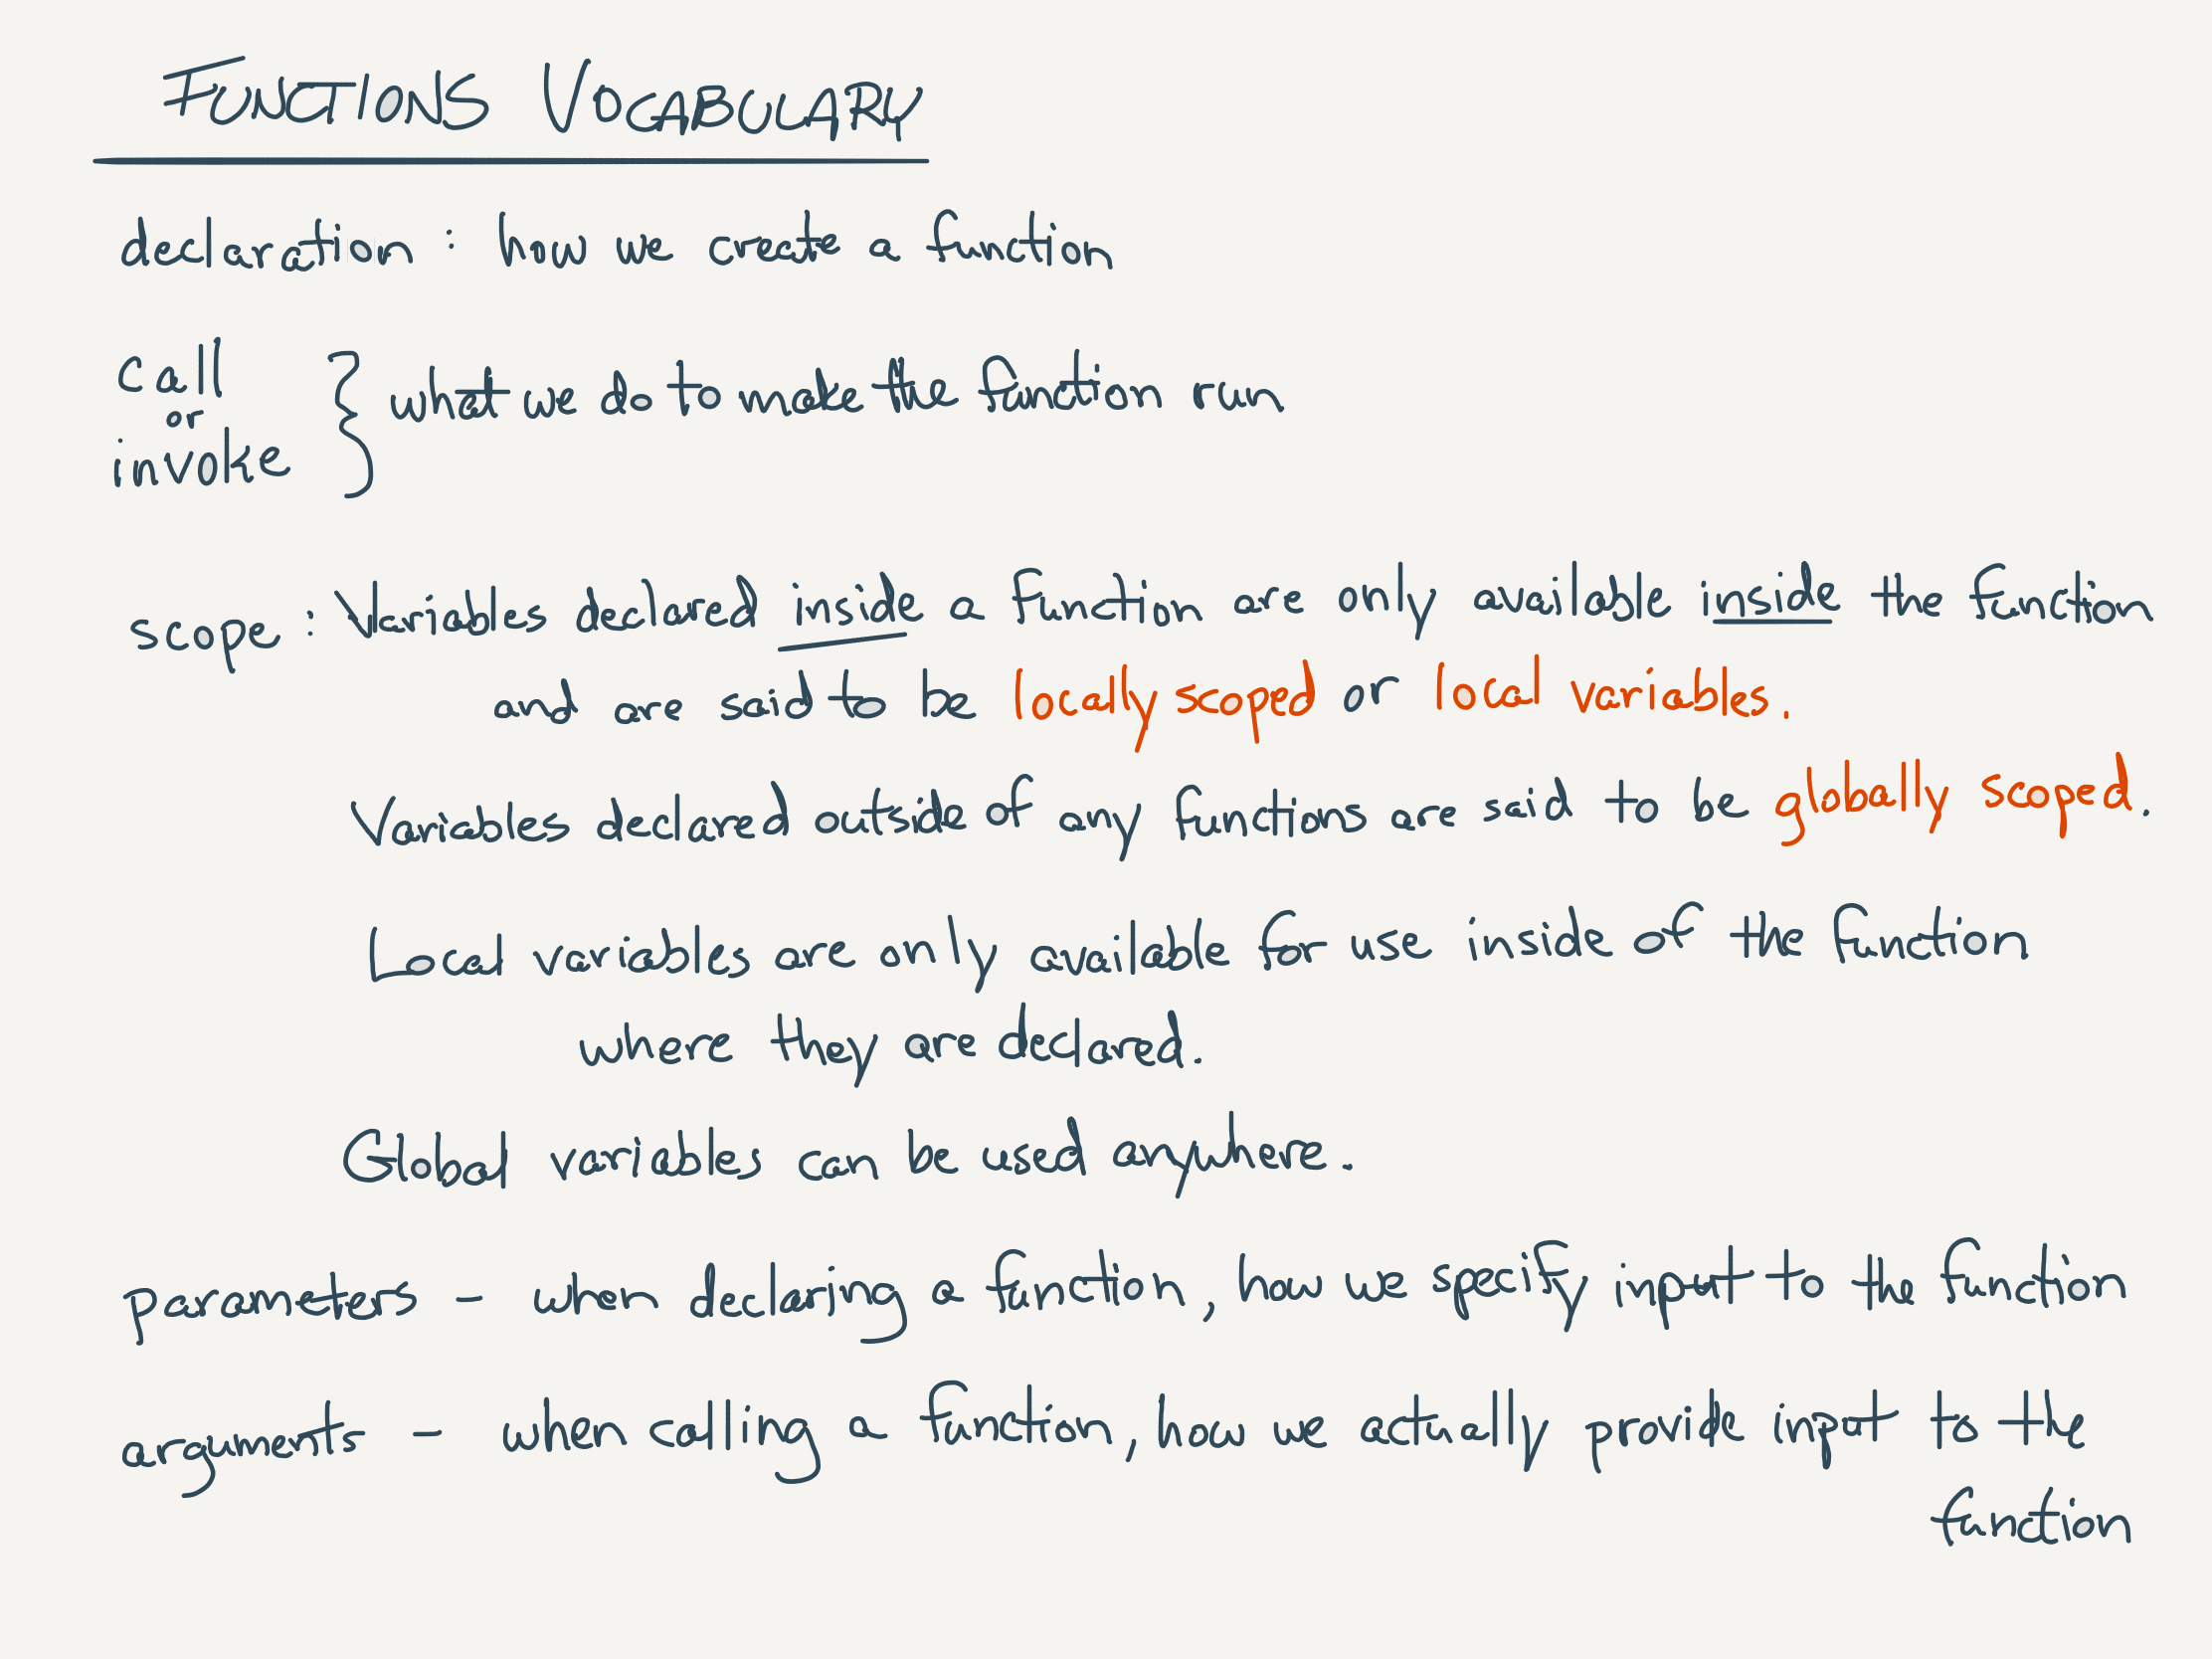 FUNCTIONS VOCABULARY
declaration : how we create a function
call
or
invoke
} what we do to make the function run
scope : Variables declared inside a function are only available inside the function
and are said to be locally scoped or local variables.
Variables declared outside of any functions are said to be globally scoped.
Local variables are only available for use inside of the function
where they are declared.
Global variables can be used anywhere.
parameters - when declaring a function, how we specify input to the function
arguments - when calling a function, how we actually provide input to the
function